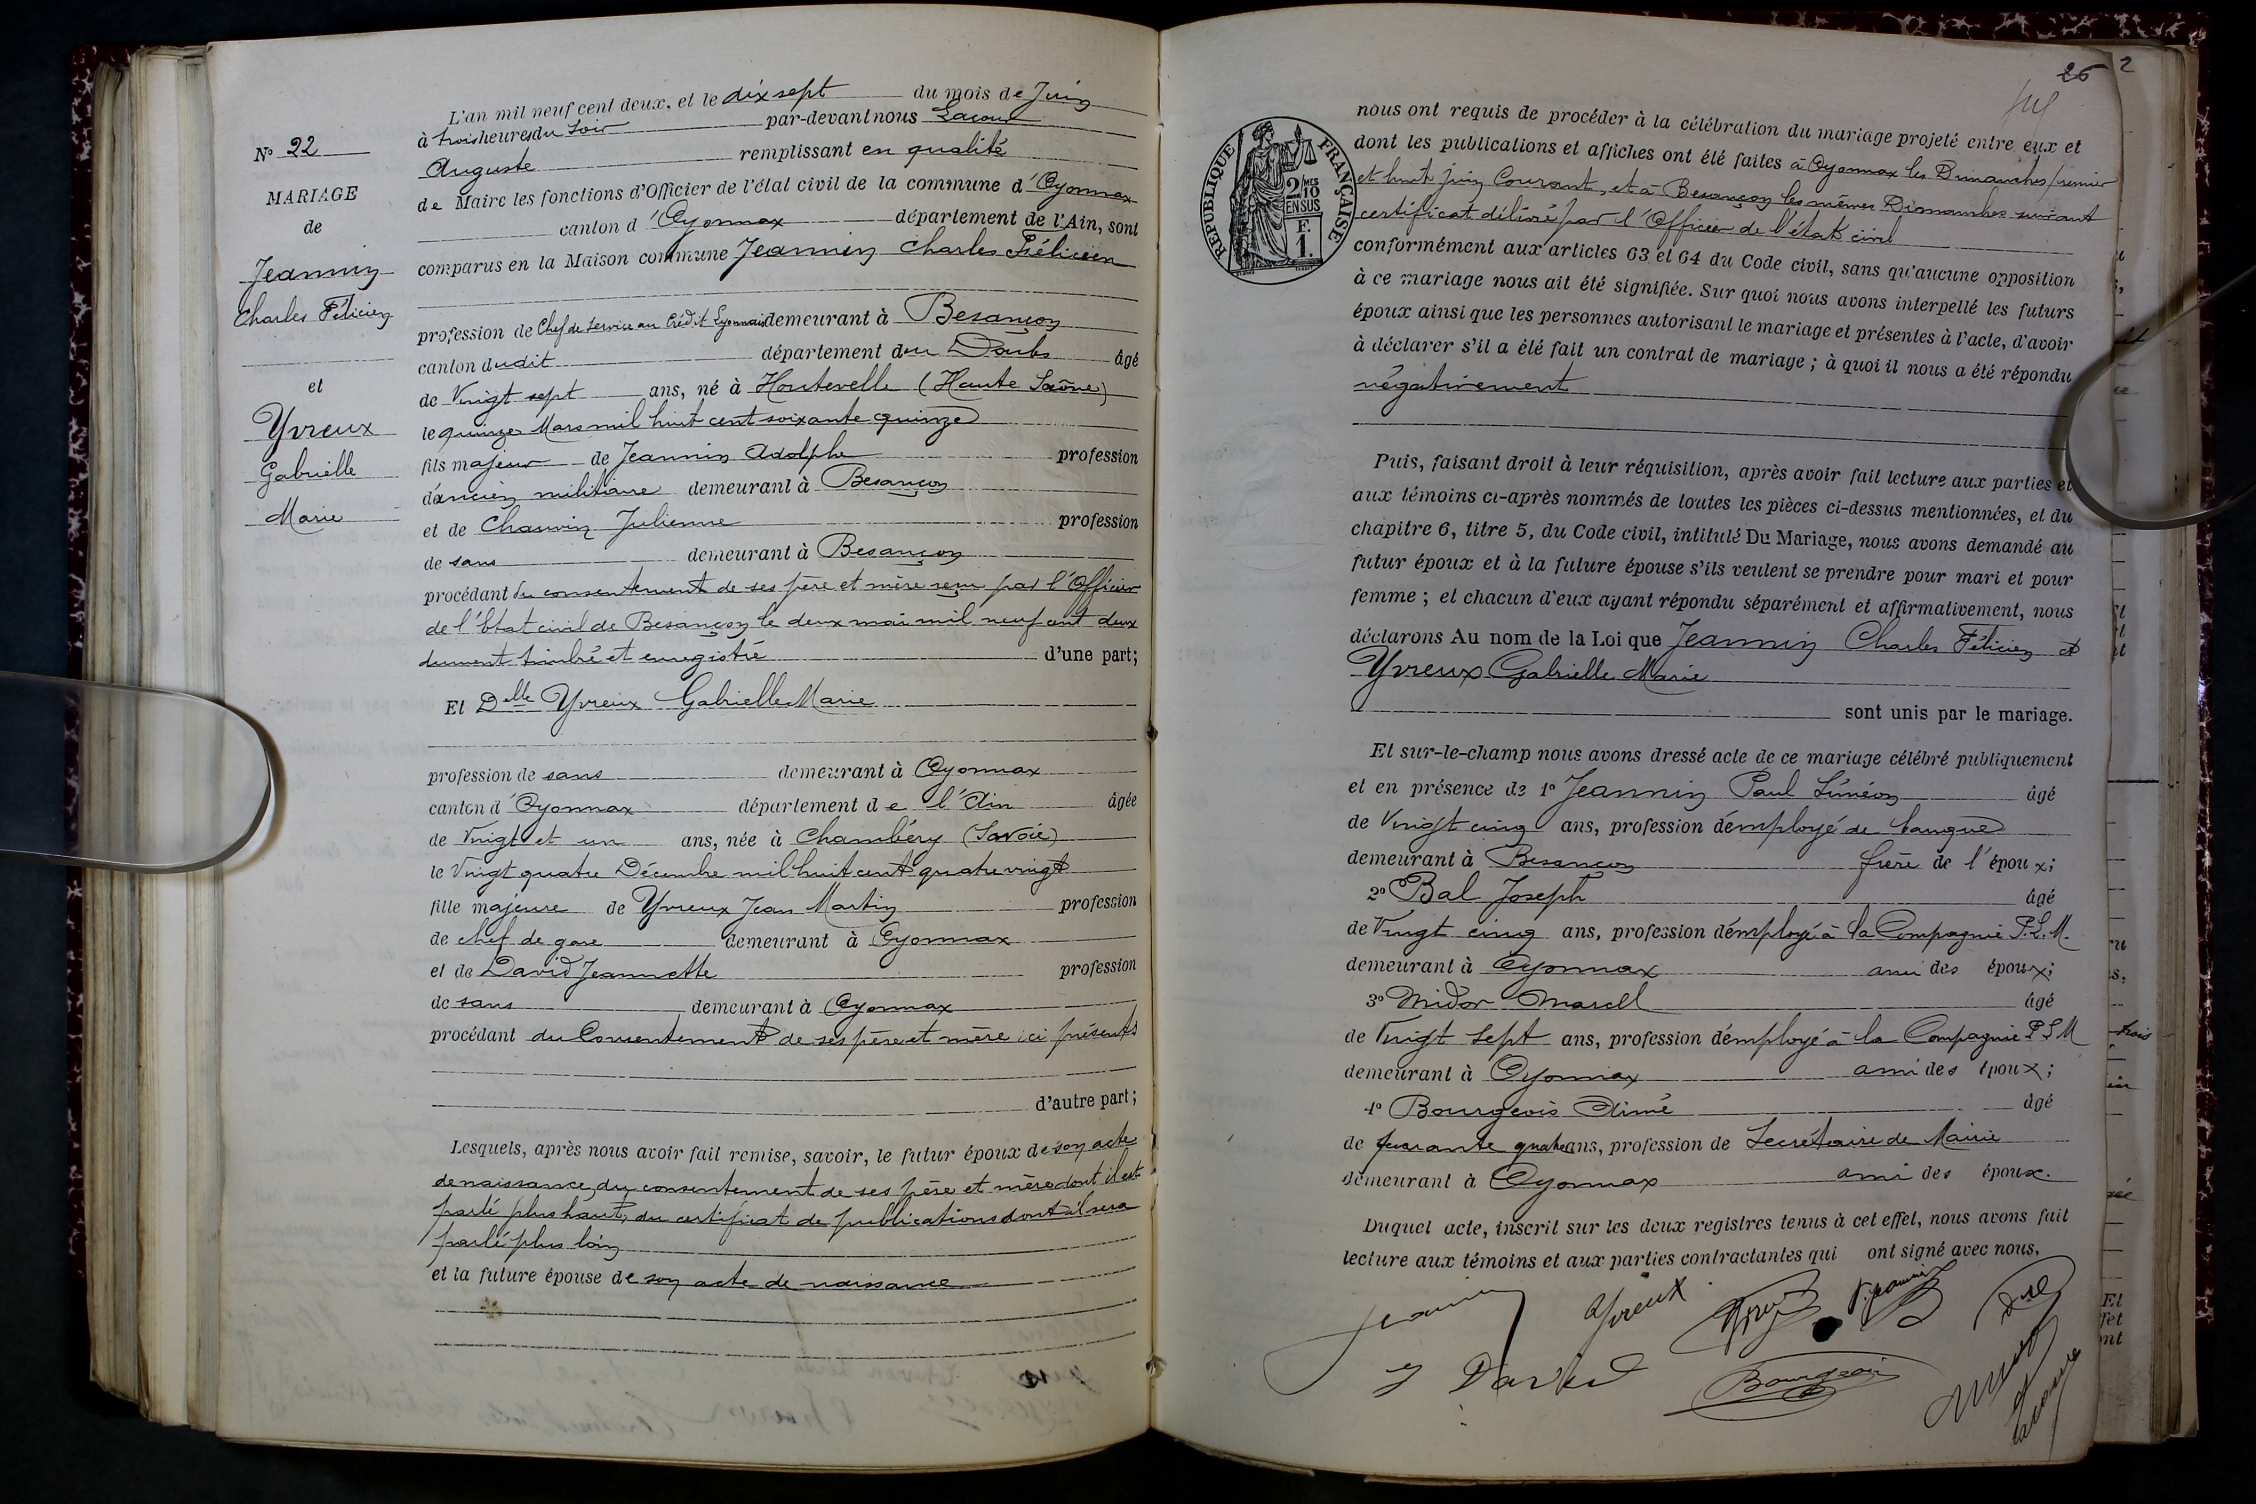 N° 22
MARIAGE
de
Jeannin
Charles Félicien
et
Yvreux
Gabrielle
Marie
L'an mil neuf cent deux, et le dix sept du mois de Juin
à trois heures du soir par-devant nous Lacour
Auguste remplissant en qualité
de Maire les fonctions d'Officier de l'état civil de la commune d'Oyonnax
canton d'Oyonnax département de l'Ain, sont
comparus en la Maison commune Jeannin Charles Félicien
profession de Chef de service au Crédit Lyonnais demeurant à Besançon
canton dudit département du Doubs âgé
de Vingt sept ans, né à Hautevelle (Haute Saône)
le quinze Mars mil huit cent soixante quinze
fils majeur de Jeannin Adolphe profession
d'ancien militaire demeurant à Besançon
et de Chauvin Julienne profession
de sans demeurant à Besançon
procédant du consentement de ses père et mère reçu par l'Officier
de l'Etat civil de Besançon le deux mai mil neuf cent deux
dument timbré et enregistré d'une part;
Et Delle Yvreux Gabrielle Marie
profession de sans demeurant à Oyonnax
canton d'Oyonnax département de l'Ain âgée
de Vingt et un ans, née à Chambéry (Savoie)
le Vingt quatre Décembre mil huit cent quatre vingt
fille majeure de Yvreux Jean Martin profession
de chef de gare demeurant à Oyonnax
et de David Jeannette profession
de sans demeurant à Oyonnax
procédant du Consentement de ses père et mère ici présents
d'autre part;
Lesquels, après nous avoir fait remise, savoir, le futur époux de son acte
de naissance, du consentement de ses père et mère dont il est
parlé plus haut, du certificat de publications dont il sera
parlé plus loin
et la future épouse de son acte de naissance
26 2
RÉPUBLIQUE FRANÇAISE
2/10 MES
EN SUS
F.
1.
nous ont requis de procéder à la célébration du mariage projeté entre eux et
dont les publications et affiches ont été faites à Oyonnax les Dimanches premier
et huit juin Courant, et à Besançon les mêmes Dimanches suivant
certificat délivré par l'Officier de l'état civil
conformément aux articles 63 et 64 du Code civil, sans qu'aucune opposition
à ce mariage nous ait été signifiée. Sur quoi nous avons interpellé les futurs
époux ainsi que les personnes autorisant le mariage et présentes à l'acte, d'avoir
à déclarer s'il a été fait un contrat de mariage ; à quoi il nous a été répondu
négativement
Puis, faisant droit à leur réquisition, après avoir fait lecture aux parties et
aux témoins ci-après nommés de toutes les pièces ci-dessus mentionnées, et du
chapitre 6, titre 5, du Code civil, intitulé Du Mariage, nous avons demandé au
futur époux et à la future épouse s'ils veulent se prendre pour mari et pour
femme ; et chacun d'eux ayant répondu séparément et affirmativement, nous
déclarons Au nom de la Loi que Jeannin Charles Félicien et
Yvreux Gabrielle Marie
sont unis par le mariage.
Et sur-le-champ nous avons dressé acte de ce mariage célébré publiquement
et en présence de 1° Jeannin Paul Siméon âgé
de Vingt cinq ans, profession d'employé de banque
demeurant à Besançon frère de l'époux;
2° Bal Joseph âgé
de Vingt cinq ans, profession d'employé à la Compagnie P.L.M.
demeurant à Oyonnax ami des époux;
3° Midor Marcel âgé
de Vingt Sept ans, profession d'employé à la Compagnie P L M
demeurant à Oyonnax ami des époux;
4° Bourgeois Aimé âgé
de quarante quatre ans, profession de Secrétaire de Mairie
demeurant à Oyonnax ami des époux.
Duquel acte, inscrit sur les deux registres tenus à cet effet, nous avons fait
lecture aux témoins et aux parties contractantes qui ont signé avec nous.
Jeannin Yvreux P. Jeannin
J David Bourgeois Lacour